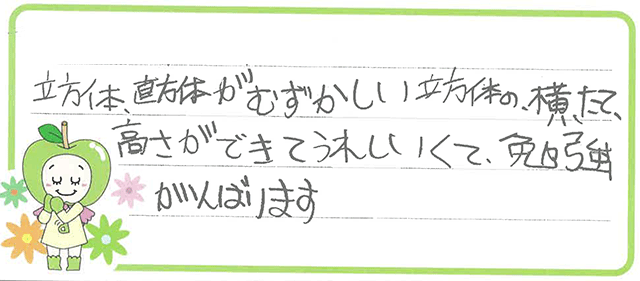 立方体、直方体がむずかしい立方体の、横、たて、
高さができてうれしいくて、勉強
がんばります